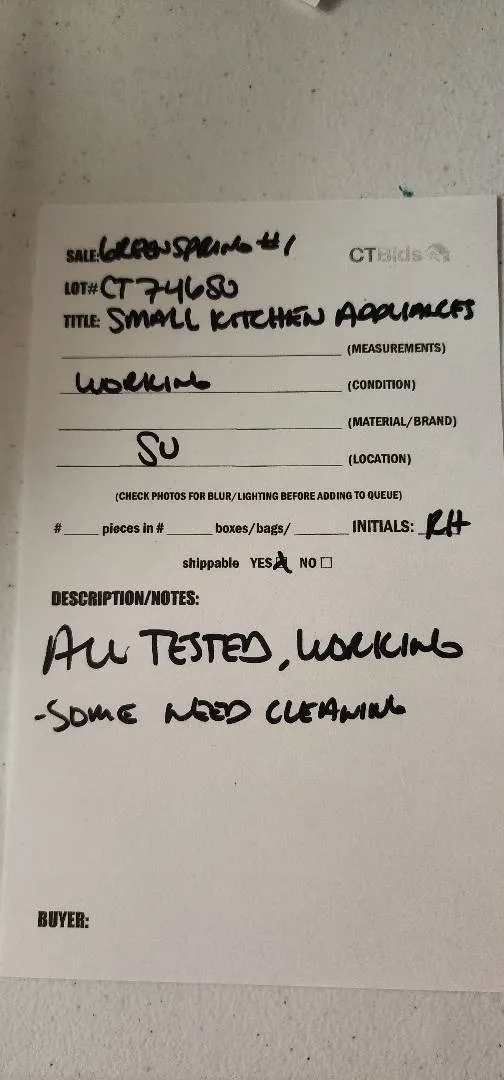 SALE: GREENSPRING #1
CTBids
LOT# CT7468U
TITLE: SMALL KITCHEN APPLIANCES
(MEASUREMENTS)
WORKING (CONDITION)
(MATERIAL/BRAND)
SU (LOCATION)
(CHECK PHOTOS FOR BLUR/LIGHTING BEFORE ADDING TO QUEUE)
#____ pieces in #____ boxes/bags/____ INITIALS: RH
shippable YES☒ NO☐
DESCRIPTION/NOTES:
ALL TESTED, WORKING
-SOME NEED CLEANING
BUYER: